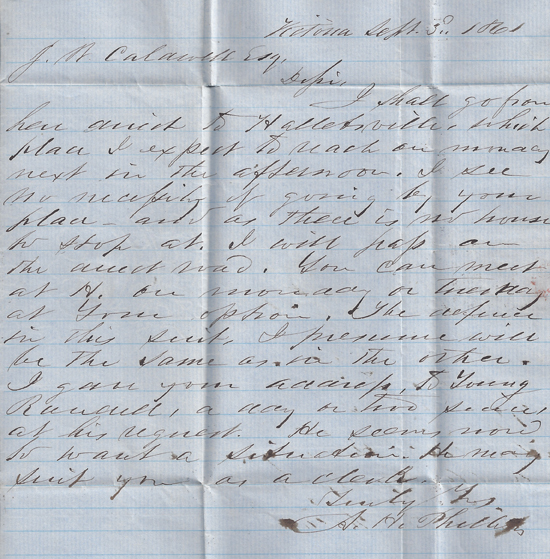 Victoria Sept. 3d. 1861
J. R Caldwell Esq.
D Sir,
I shall go from
here direct to Hallettsville, which
place I expect to reach on monday
next in the afternoon. I see
no necessity of going by your
place - and as there is no house
to stop at. I will pass on
the direct road. You can meet
at H. on monday or tuesday
at your option. The defence
in this suit, I presume will
be the same as in the other.
I gave your address, to Young
a day or two since,
at his request. He seems now
to want a situation. He may
suit you as a clerk.
Truly Yrs
A. H. Phillips